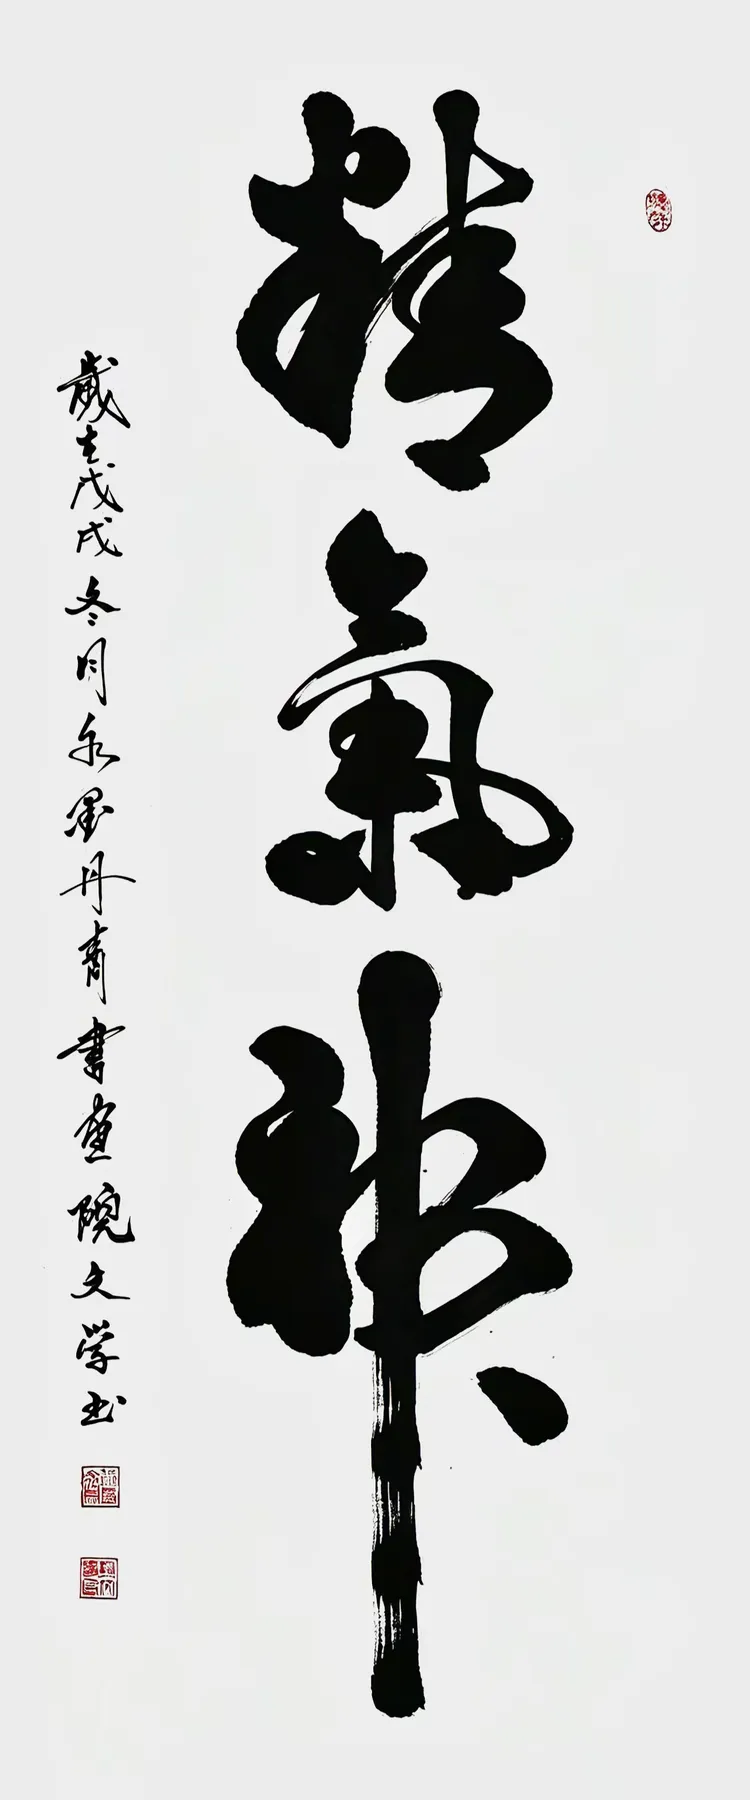 精氣神
歲在戊戌冬月永墨丹青書畫院文學书